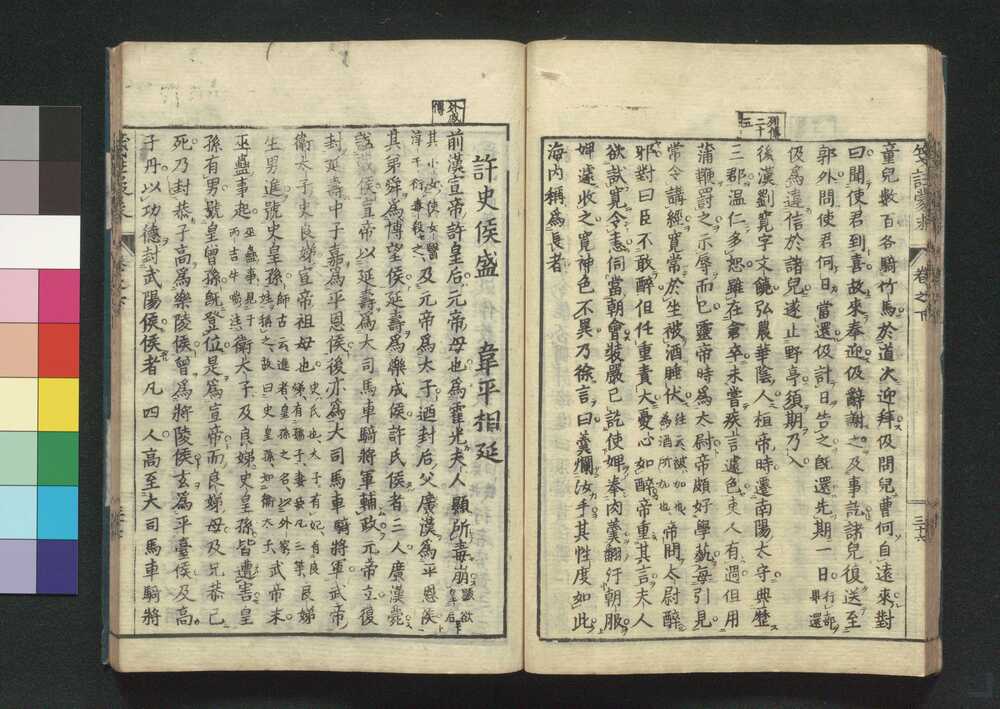 列傳
二十
五
童兒數百各騎竹馬於道次迎拜伋問兒曹何自遠來對
曰聞使君到喜故來奉迎伋辭謝之及事訖諸兒復送至
郭外問使君何日當還伋計日告之既還先期一日行部既還
伋爲違信於諸兒遂止野亭須期乃入
後漢劉寬字文饒弘農華陰人桓帝時遷南陽太守典歷
三郡温仁多恕雖在倉卒未嘗疾言遽色吏人有過但用
蒲鞭罰之示辱而已靈帝時爲太尉帝頗好學藝每引見
常令講經寬常於坐被酒睡伏 爲酒所加也帝問太尉醉
邪對曰臣不敢醉但任重責大憂心如醉帝重其言夫人
欲試寬令恚伺當朝會裝嚴已訖使婢奉肉羹飜汙朝服
婢遽收之寬神色不異乃徐言曰羹爛汝手其性度如此
海内稱爲長者
外戚
傳
許史侯盛 韋平相延
前漢宣帝許皇后元帝母也爲霍光夫人顯所毒崩顯欲
其小女使女醫淳于衍毒殺之及元帝爲太子迺封后父廣漢爲平恩侯
其弟舜爲博望侯延壽爲樂成侯許氏侯者三人廣漢薨
謚戴侯宣帝以延壽爲大司馬車騎將軍輔政元帝立復
封延壽中子嘉爲平恩侯後亦爲大司馬車騎將軍武帝
衛太子史良娣宣帝祖母也史氏也太子有妃有良娣有孺子妻妾凡三等良娣
生男進號史皇孫師古云進者皇孫之名以外家姓稱之故曰史皇孫如衛太子武帝末
巫蠱事起 衛太子及良娣史皇孫皆遭害皇
孫有男號皇曾孫既登位是爲宣帝而良娣母及兄恭已
死乃封恭子高爲樂陵侯曾爲將陵侯玄爲平臺侯及高
子丹以功德封武陽侯侯者凡四人高至大司馬車騎將